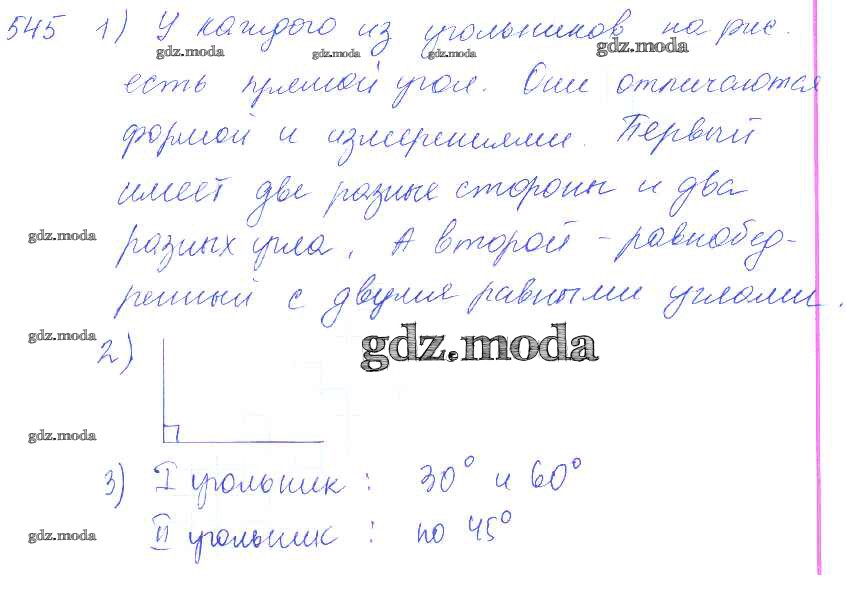 545 1) У каждого из угольников на рис.
gdz.moda gdz.moda gdz.moda
есть прямой угол. Они отличаются
формой и измерениями. Первый
имеет две разные стороны и два
gdz.moda разных угла, А второй - равнобед-
ренный с двумя равными углами.
gdz.moda
2) gdz.moda
gdz.moda
3) I угольник: 30° и 60°
gdz.moda II угольник: по 45°